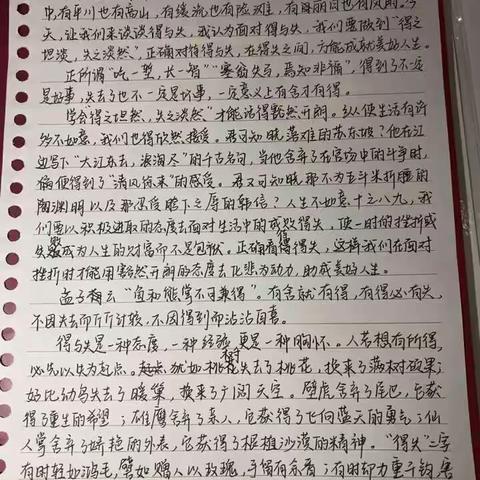 中有平川也有高山，有缓流也有险滩，有丽日也有风雨。今
天，让我们来谈谈得与失，我认为面对得与失，我们要做到“得之
坦淡，失之淡然”，正确对待得与失，在得失之间，方能成就美好人生。
正所谓“吃一堑，长一智”“塞翁失马，焉知非福”，得到了不一定
是好事，失去了也不一定是坏事，一定意义上有舍才有得。
学会得之坦然，失之淡然”才能活得豁然开朗。纵使生活有许
多不如意，我们也得欣然接受。君可知晓落难的苏东坡？他在江
边写下“大江东去，浪淘尽”的千古名句，当他舍弃了在官场中的斗争时，
偏便得到了“清风徐来”的感受。君又可知晓，那不为五斗米折腰的
陶渊明以及那忍受胯下之辱的韩信？人生不如意十之八九，我
们要以积极进取的态度去面对生活中的成败得失，使一时的挫折或
失败成为人生的财富而不是包袱。正确看待得失，这样我们在面对
挫折时才能用豁然开朗的态度去化悲为动力，助成美好人生。
孟子有云“鱼和熊掌不可兼得”。有舍就有得，有得必有失，
不因失去而斤斤计较，不因得到而沾沾自喜。
得与失是一种态度，一种经验，更是一种胸怀。人若想有所得，
必先以失为起点。就如桃树失去了桃花，换来了满树硕果；
好比幼鸟失去了暖巢，换来了广阔天空。壁虎舍弃了尾巴，它获
得了重生的希望；雄鹰舍弃了亲人，它获得了飞向蓝天的勇气；仙
人掌舍弃了娇艳的外表，它获得了根植沙漠的精神。“得失”二字
有时轻如鸿毛，譬如赠人以玫瑰，手留有余香；有时却力重千钧，害